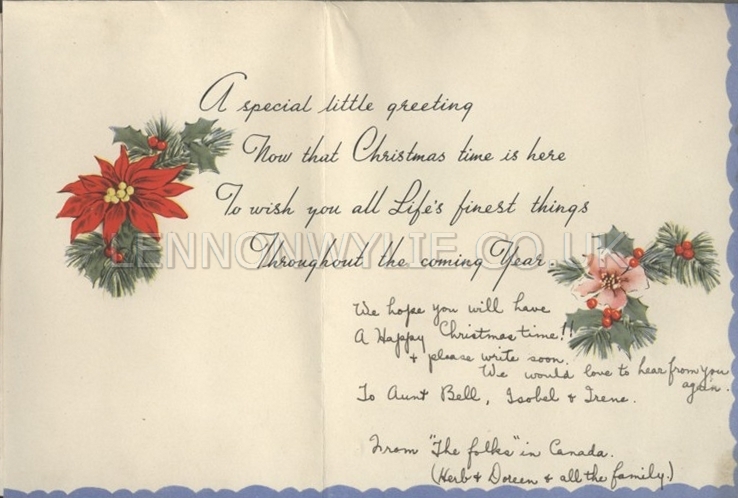 A special little greeting
Now that Christmas time is here
To wish you all Life's finest things
LENNONWYLIE.CO.UK
Throughout the coming Year.
We hope you will have
A Happy Christmas time!!
& please write soon.
We would love to hear from you
again.
To Aunt Bell, Isobel & Irene.
From "The folks" in Canada.
(Herb & Doreen & all the family.)